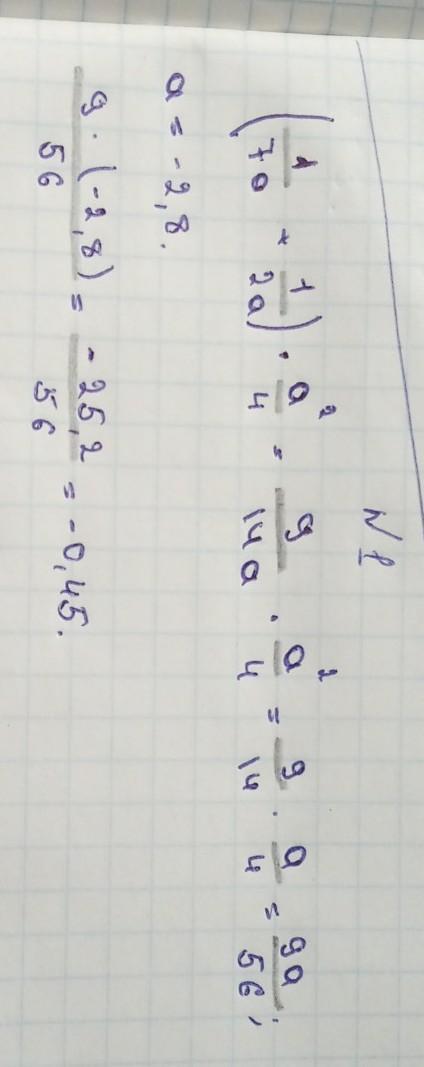 N 1
(1/7a + 1/2a) · a²/4 = 9/14a · a²/4 = 9/14 · a/4 = 9a/56;
a = -2,8.
9·(-2,8)/56 = -25,2/56 = -0,45.